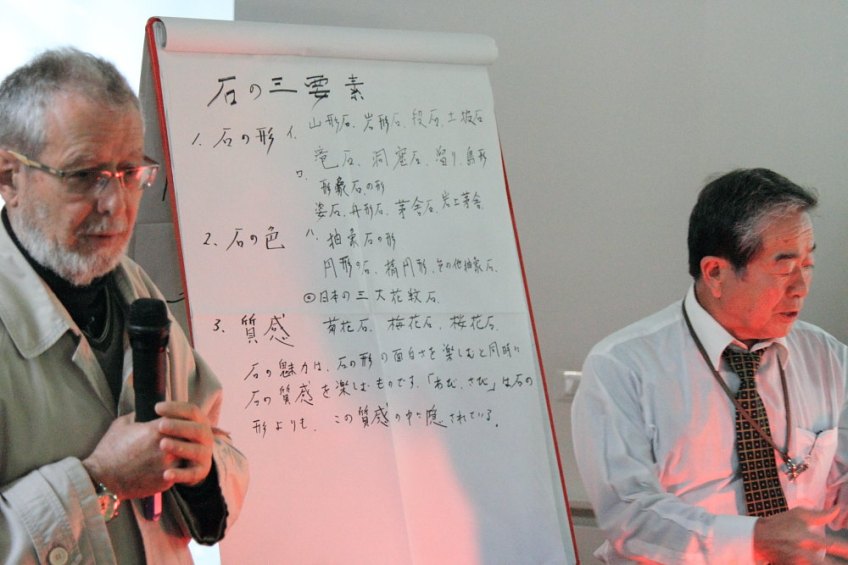 石の三要素
1. 石の形 イ. 山形石、岩形石、段石、土坡石
滝石、洞窟石、溜り、島形
ロ. 形象石の形
姿石、舟形石、茅舎石、岩上茅舎
2. 石の色 ハ. 抽象石の形
円形の石、楕円形、その他抽象石.
◎日本の三大花紋石.
3. 質感 菊花石、梅花石、桜花石.
石の魅力は、石の形の面白さを楽しむと同時に
石の質感を楽しむものです。「わび、さび」は石の
形よりも、この質感の中に隠されている。